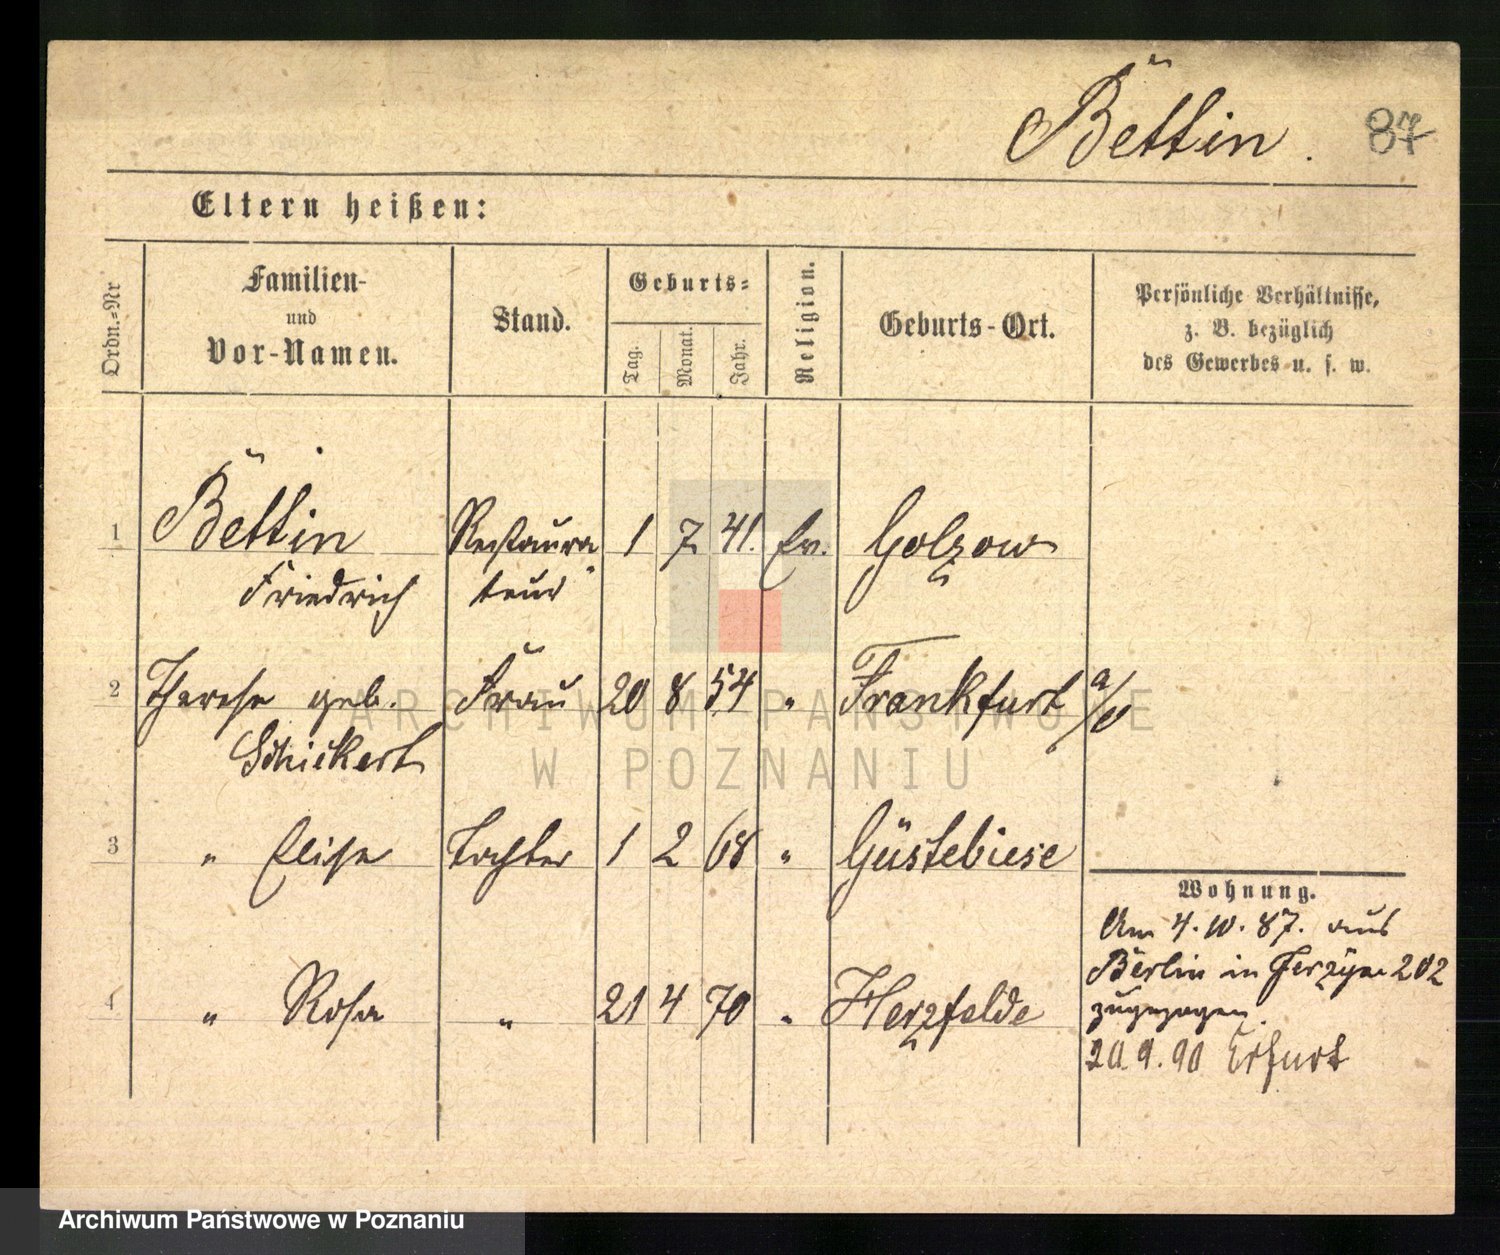 Bettin. 87
Eltern heißen:
Ordn.=Nr
Familien-
und
Vor-Namen.
Stand.
Geburts=
Tag.
Monat.
Jahr.
Religion.
Geburts-Ort.
Persönliche Verhältnisse,
z. B. bezüglich
des Gewerbes u. s. w.
1 Bettin Restaura 1 7 41. Ev. Golzow
Friedrich teur
2 Therese geb. Frau 20 8 54 " Frankfurt a/O
Schickert
3 " Elise Tochter 1 2 68 " Güstebiese
4 " Rosa " 21 4 70 " Herzfelde
Wohnung.
Am 4. 10. 87. aus
Berlin in 202
zugezogen.
20.9.90 Erfurt
ARCHIWUM PAŃSTWOWE
W POZNANIU
Archiwum Państwowe w Poznaniu